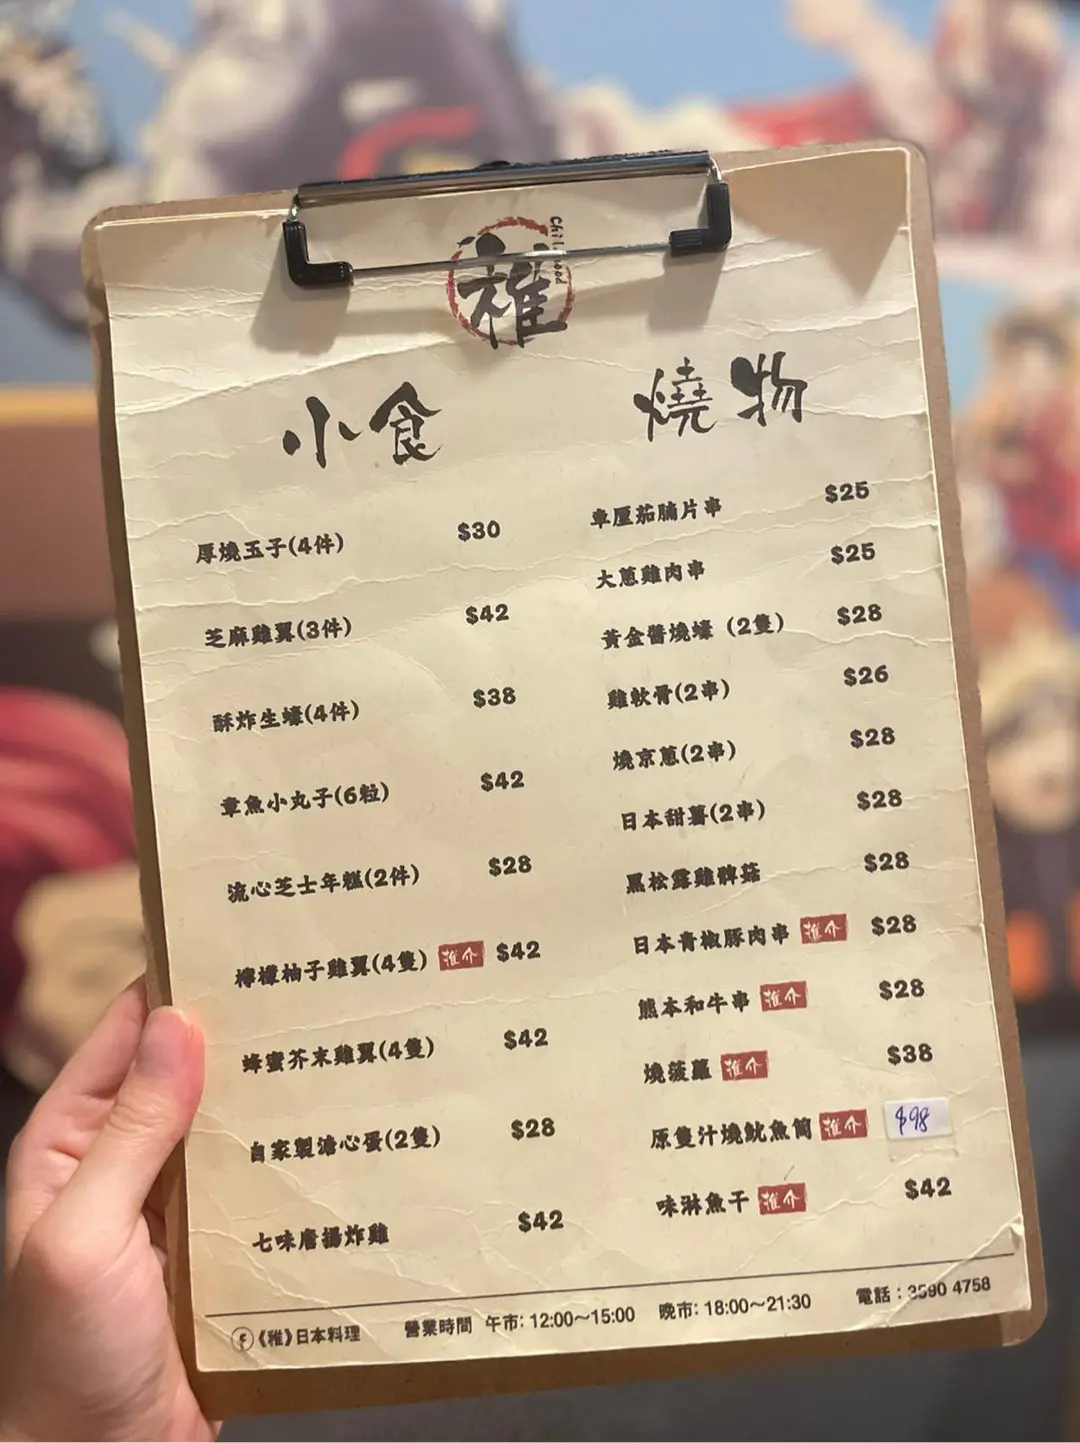 稚
小食
厚燒玉子(4件) $30
芝麻雞翼(3件) $42
酥炸生蠔(4件) $38
章魚小丸子(6粒) $42
流心芝士年糕(2件) $28
檸檬柚子雞翼(4隻) 推介 $42
蜂蜜芥末雞翼(4隻) $42
自家製溏心蛋(2隻) $28
七味唐揚炸雞 $42
燒物
車厘茄腩片串 $25
大蔥雞肉串 $25
黃金醬燒蠔 (2隻) $28
雞軟骨(2串) $26
燒京蔥(2串) $28
日本甜薯(2串) $28
黑松露雞髀菇 $28
日本青椒豚肉串 推介 $28
熊本和牛串 推介 $28
燒菠蘿 推介 $38
原隻汁燒魷魚筒 推介 $98
味淋魚干 推介 $42
《稚》日本料理 營業時間 午市: 12:00～15:00 晚市: 18:00～21:30 電話 : 3590 4758